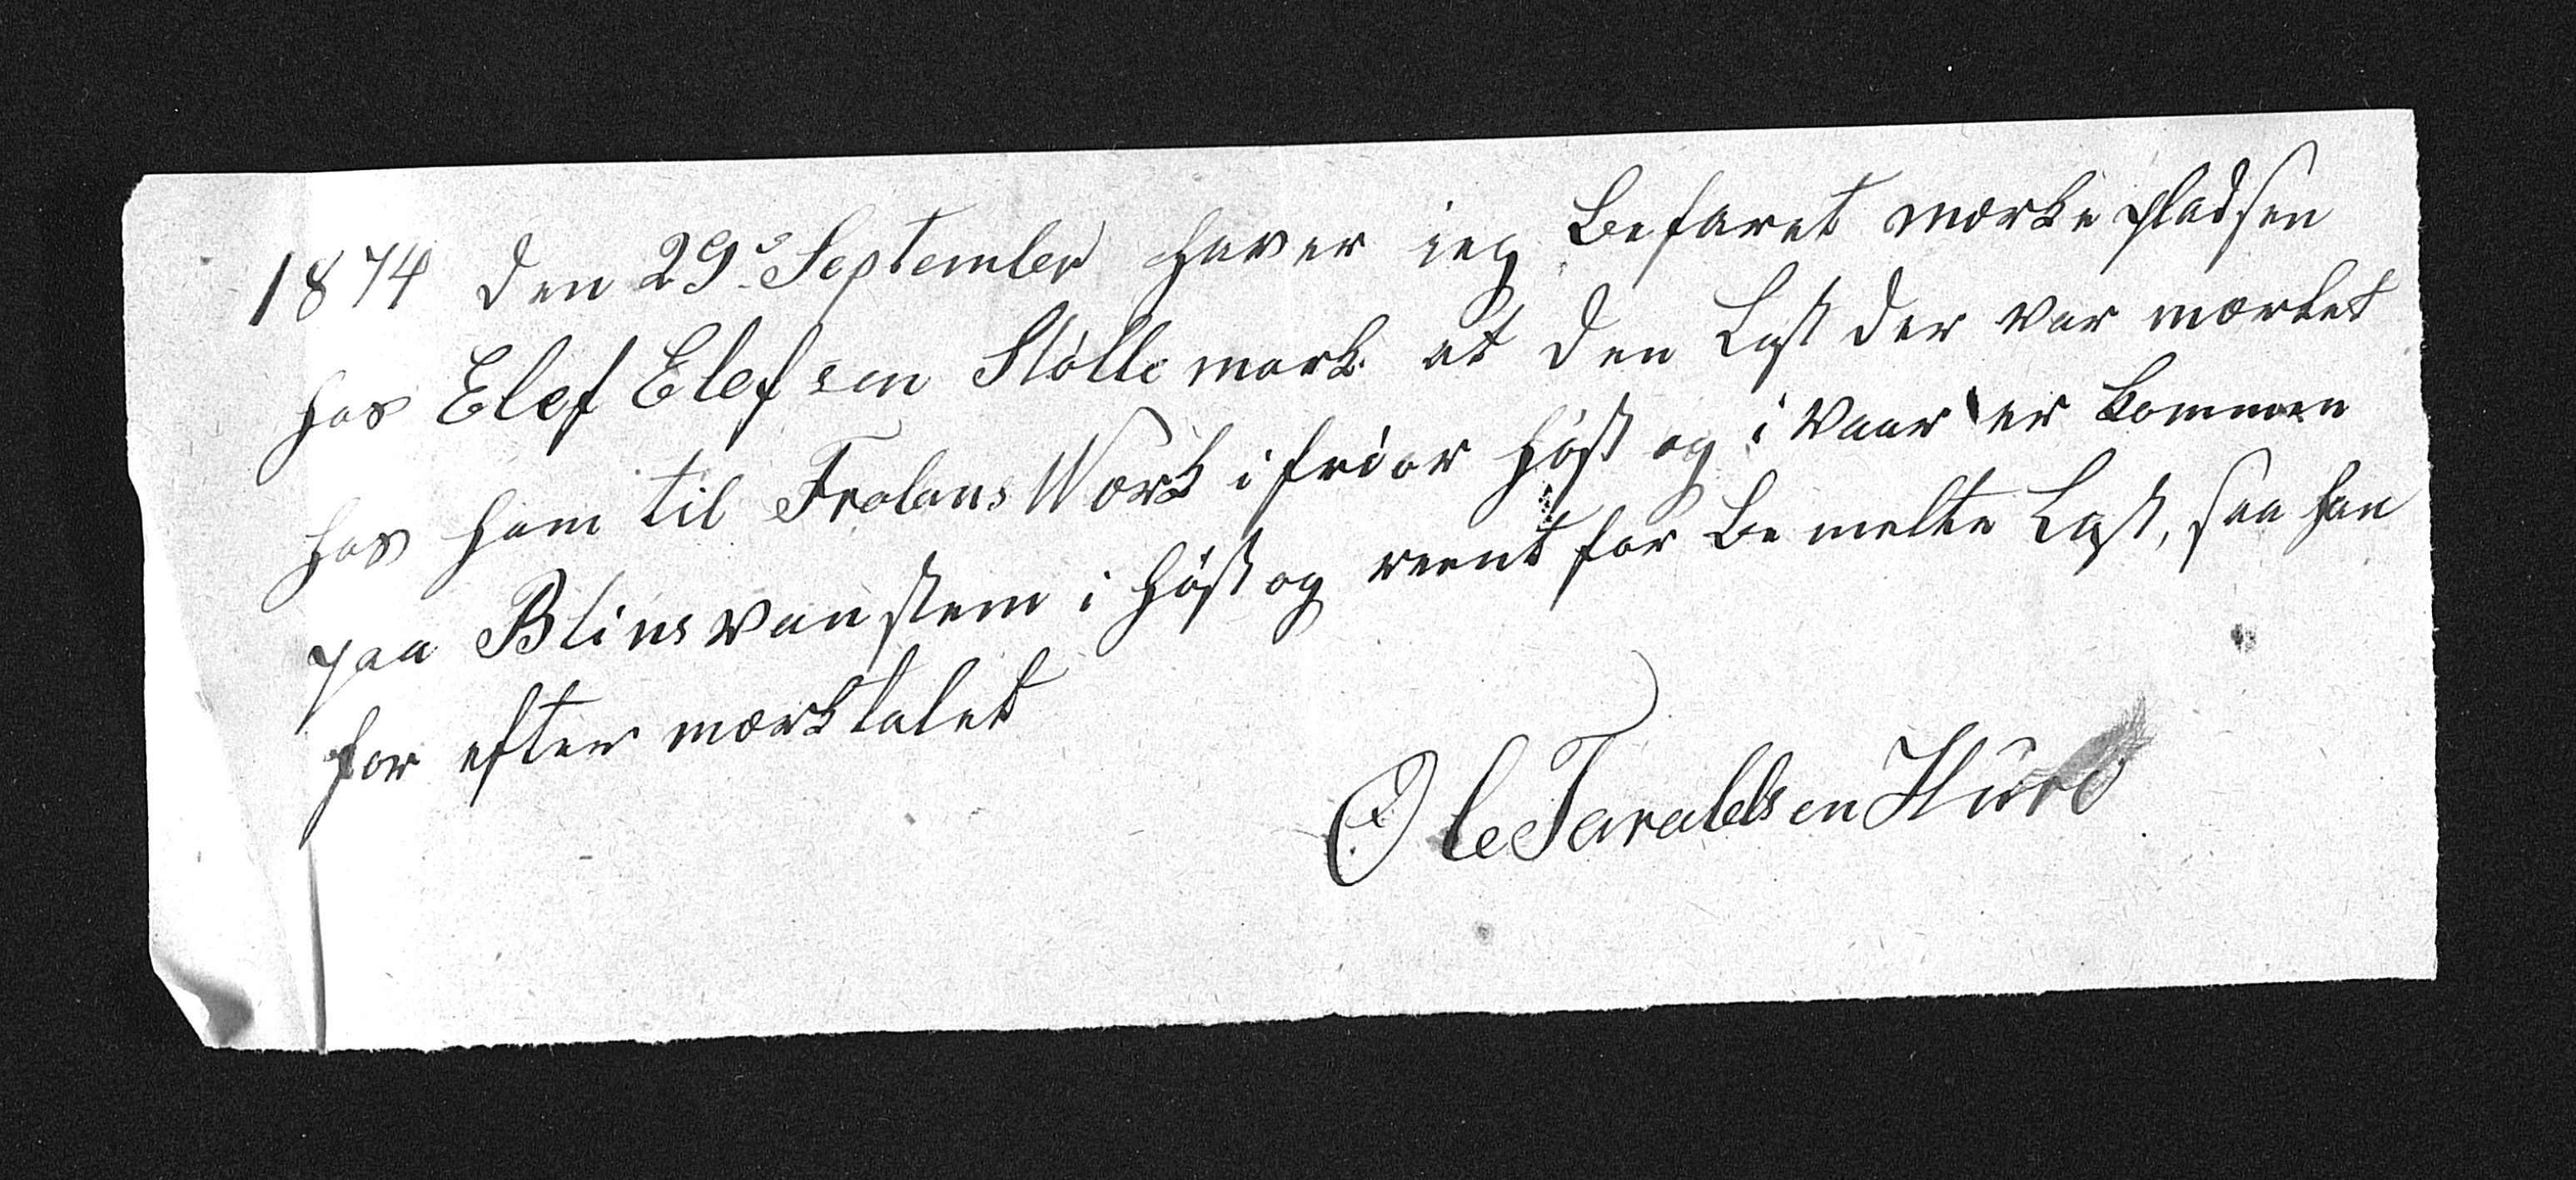 1874 den 29de September haver ieg Befaret mærke pladsen
hos Elef Elefsen Stølle mark at den Last der var mærket
hos ham til Frolans Værk i friaar høst og i Vaar er kommen
paa Blinsvanstem i høst og reent for Be melte Last, saa han
faar efter mærktalet
Ole Taraldsen Hurv